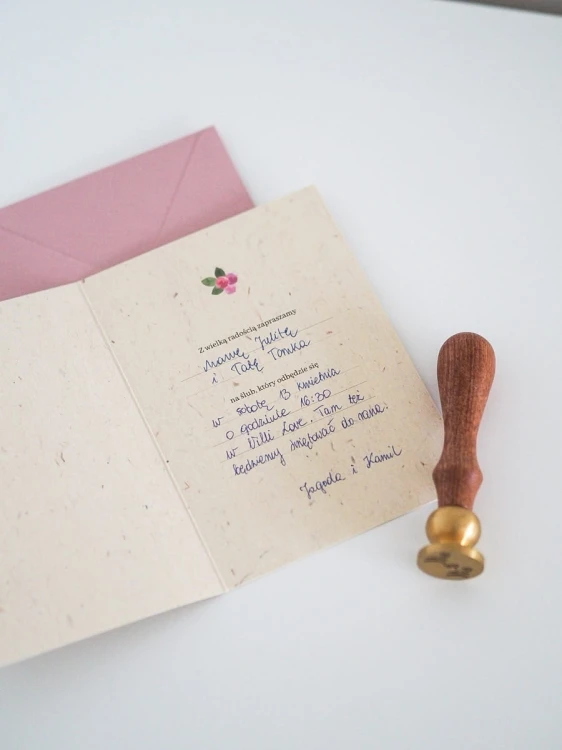 Z wielką radością zapraszamy
Mamę Julitę
i Tatę Tomka
na ślub, który odbędzie się
w sobotę 13 kwietnia
o godzinie 16:30
w Villi Love. Tam też
będziemy świętować do rana!
Jagoda i Kamil